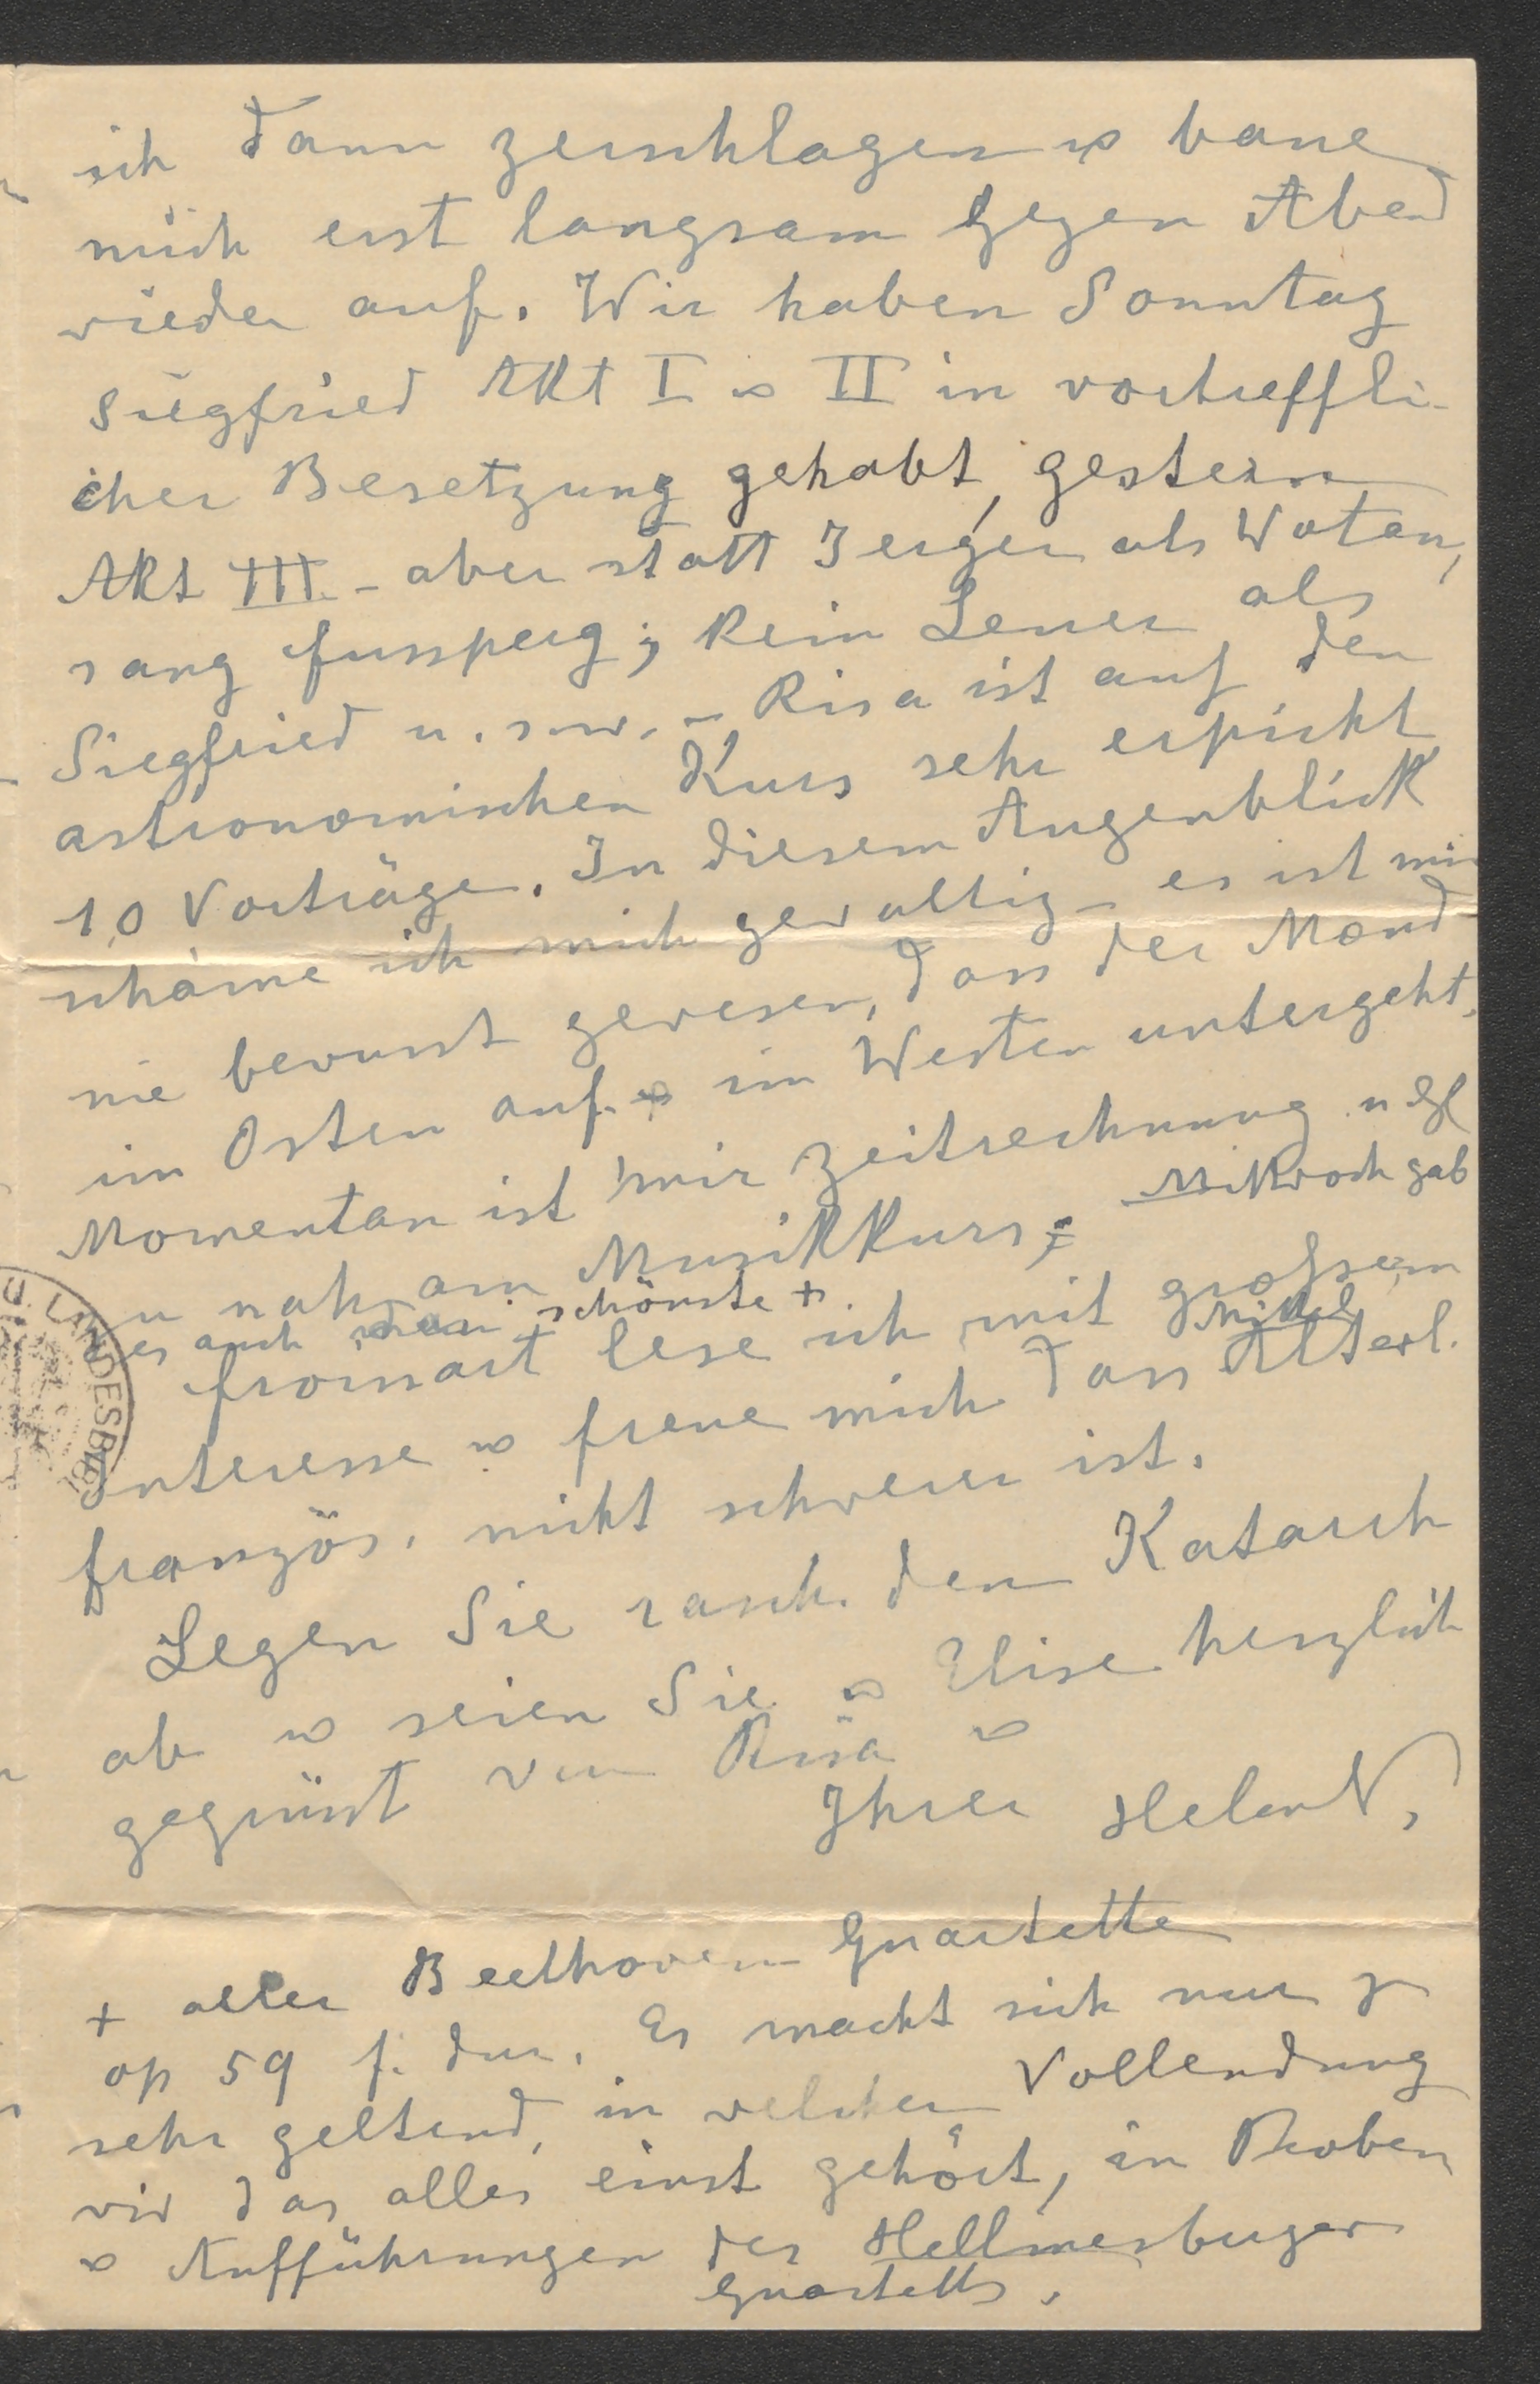 ich dann zerschlagen u baue
mich erst langsam gegen Abend
wieder auf. Wir haben Sonntag
Siegfried Akt I u II in vortreffli-
cher Besetzung gehabt, gestern
Akt III. - aber statt Jerger als Wotan,
sang fussperg; kein Lener als
Siegfried u. s. w. - Risa ist auf den
astronomischen Kurs sehr erpicht
10 Vorträge. In diesem Augenblick
schäme ich mich gewaltig - es ist mir
nie bewusst gewesen, dass der Mond
im Osten auf- u im Westen untergeht.
Momentan ist mir Zeitrechnung u
u nah am Musikkurs; Mittwoch gab
es auch schönste +
froissart lese ich mit grossem
Interesse u freue mich dass Mittel Alterl.
französ. nicht schwerer ist.
Legen Sie rasch den Katarrh
ab u seien Sie u Elise herzlich
gegrüsst von Risa u
Ihrer HelenN,
+ aller Beethoven Quartette
op 59 f. dur. Es macht sich nur z
sehr geltend, in welcher Vollendung
wir das alles einst gehört, in Proben
u Aufführungen des Hellmesberger
Quartetts.
U. LANDESBI